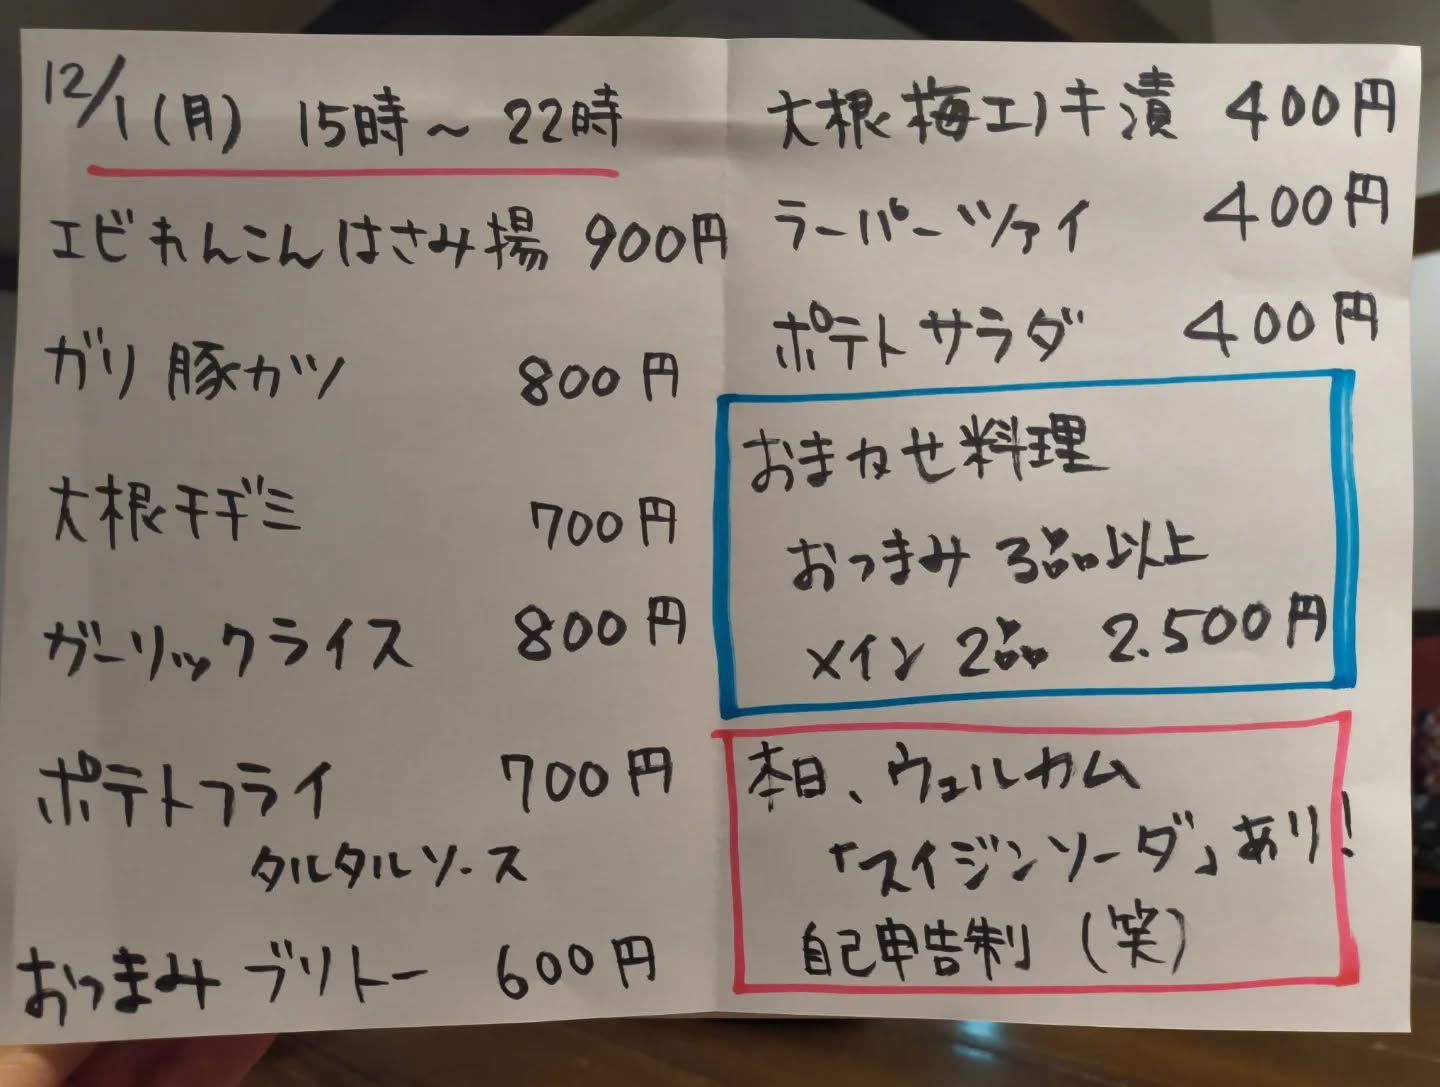 12/1(月) 15時～22時
エビれんこんはさみ揚 900円
ガリ豚カツ 800円
大根チヂミ 700円
ガーリックライス 800円
ポテトフライ 700円
タルタルソース
おつまみブリトー 600円
大根梅エノキ漬 400円
ラーパーツァイ 400円
ポテトサラダ 400円
おまかせ料理
おつまみ 3品以上
メイン 2品 2.500円
本日、ウェルカム
「スイジンソーダ」あり!
自己申告制 (笑)